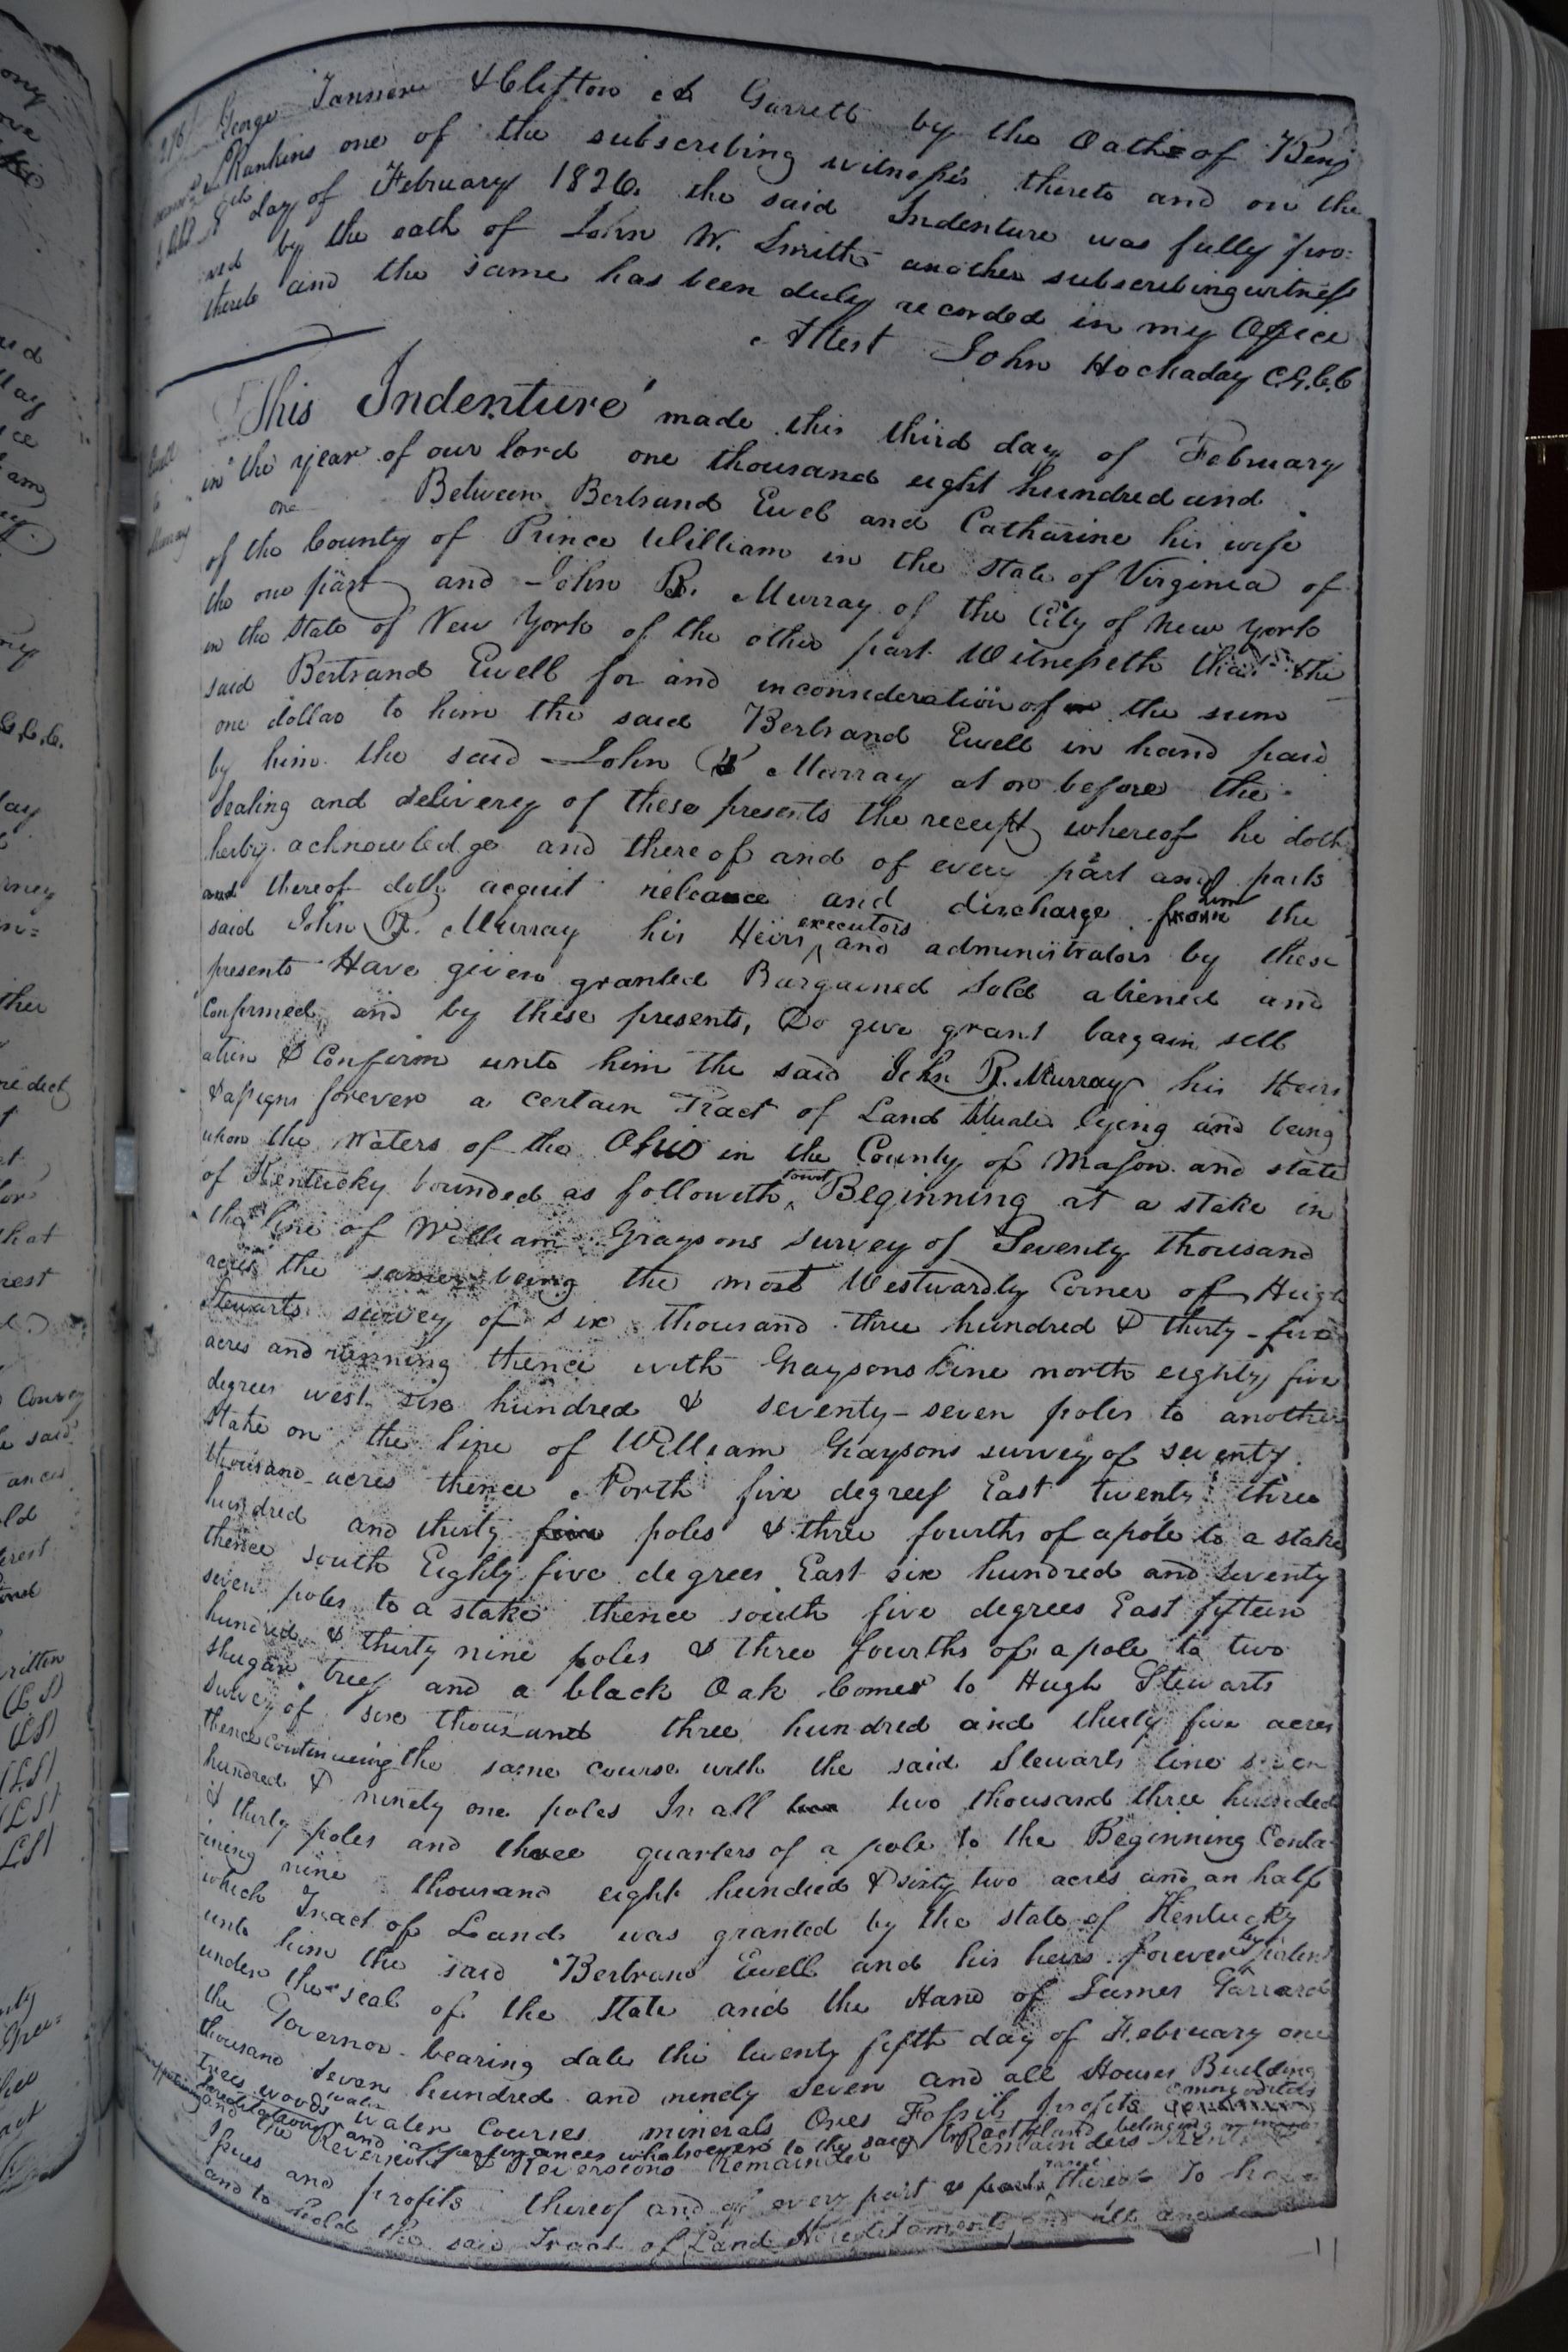 George Tanner & Clifton A Garrett by the Oath of Benj
Rankins one of the subscribing witnesses thereto and on the
8th day of February 1826. the said Indenture was fully pro:
ved by the oath of John W. Smith another subscribing witness
thereto and the same has been duly recorded in my Office
Attest John Hockaday C.G.C.C
This Indenture made this third day of February
in the year of our lord one thousand eight hundred and
one Between Bertrand Ewell and Catharine his wife
of the County of Prince William in the State of Virginia of
the one part and John R. Murray of the City of New York
in the State of New York of the other part Witnesseth that the
said Bertrand Ewell for and in consideration of the sum
one dollar to him the said Bertrand Ewell in hand paid
by him the said John R Murray at or before the
Sealing and delivery of these presents the receipt whereof he doth
herby acknowledge and thereof and of every part and parts
and thereof doth acquit releance and discharge from him the
said John R. Murray his Heirs executors and administrators by these
presents Have given granted Bargained Sold aliened and
Confirmed and by these presents, Do give grant bargain sell
alien & Confirm unto him the said John R. Murray his Heirs
& assigns forever a certain Tract of Land Situate lying and being
upon the Waters of the Ohio in the County of Mason and state
of Kentucky bounded as followeth, towit Beginning at a stake in
the line of William Graysons survey of Seventy thousand
acres the same being the most Westwardly Corner of Hugh
Stewarts survey of six thousand three hundred & thirty-five
acres and running thence with Graysons line north eighty five
degrees west six hundred & seventy-seven poles to another
Stake on the line of William Graysons survey of seventy
thousand acres thence North five degrees East twenty three
hundred and thirty five poles & three fourths of a pole to a stake
thence south Eighty five degrees East six hundred and seventy
seven poles to a stake thence south five degrees East fifteen
hundred & thirty nine poles & three fourths of a pole to two
shugar trees and a black Oak Corner to Hugh Stewarts
Survey of six thousand three hundred and thirty five acres
thence continueing the same course with the said Stewarts line seven
hundred & ninety one poles In all two thousand three hundred
& thirty poles and three quarters of a pole to the Beginning Conta-
ining nine thousand eight hundred & sixty two acres and an half
which Tract of Land was granted by the state of Kentucky
unto him the said Bertrand Ewell and his heirs forever by patent
under the seal of the State and the Hand of James Garrard
the Governor bearing date the twenty fifth day of February one
thousand seven hundred and ninety seven and all Houses Building
Trees woods water Water Courses minerals Ores Fossils profits commodities
hereditaments and appurtenances whatsoever to the said Tract of Land belonging or
and the Reversion & Reversions Remainder & Remainders
Issues and profits thereof and of every part & parcel thereof To have
and to hold the said Tract of Land Hereditaments and all and